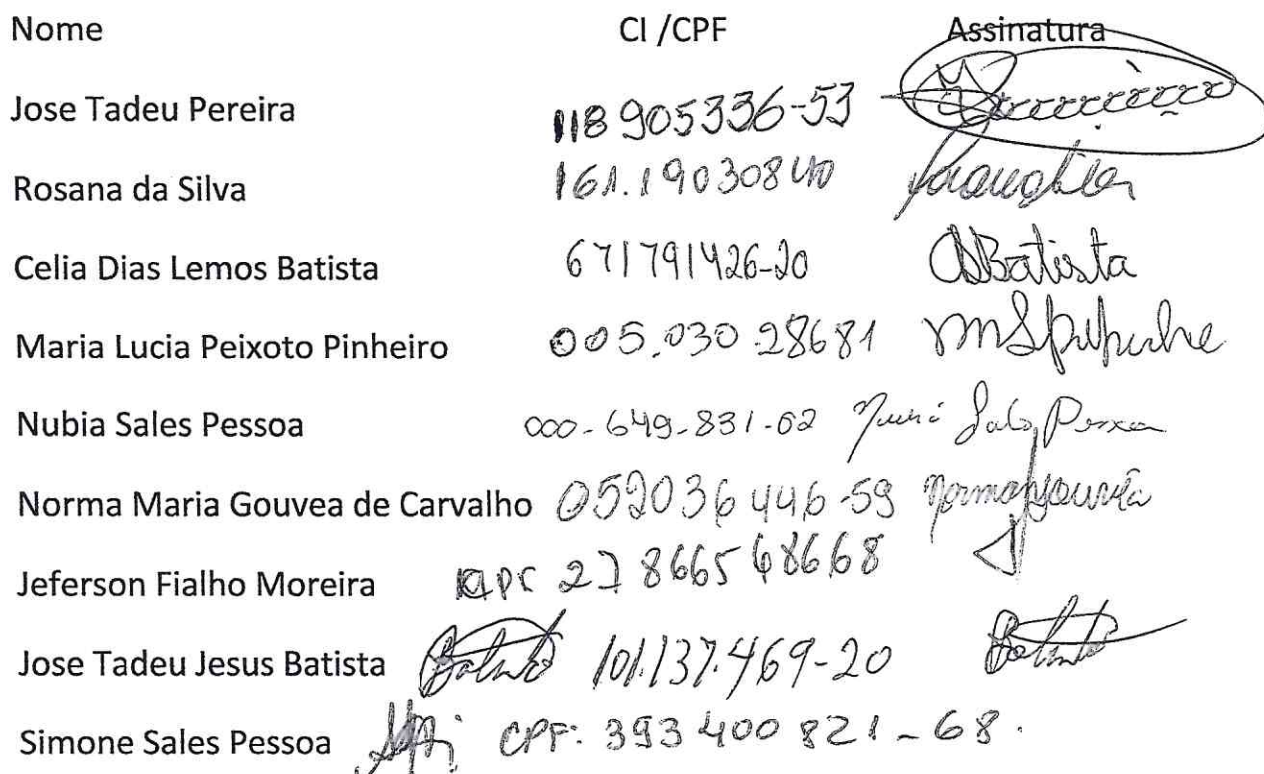 Nome CI /CPF Assinatura
Jose Tadeu Pereira 118 905336-53
Rosana da Silva 161.190308 40
Celia Dias Lemos Batista 671791426-20 Batista
Maria Lucia Peixoto Pinheiro 005.030 28681
Nubia Sales Pessoa 000-649-831-02
Norma Maria Gouvea de Carvalho 052036 446-59 Norma Gouvêa
Jeferson Fialho Moreira
Jose Tadeu Jesus Batista 101.137.469-20
Simone Sales Pessoa CPF: 393 400 821-68.